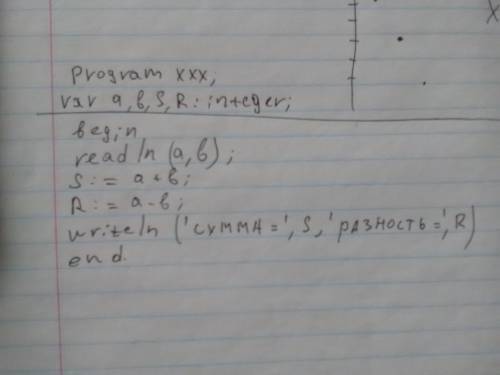 program xxx;
var a, b, S, R: integer;
begin
readln (a, b);
S:= a+b;
R:= a-b;
writeln ('сумма=', S, 'разность=', R)
end.
X